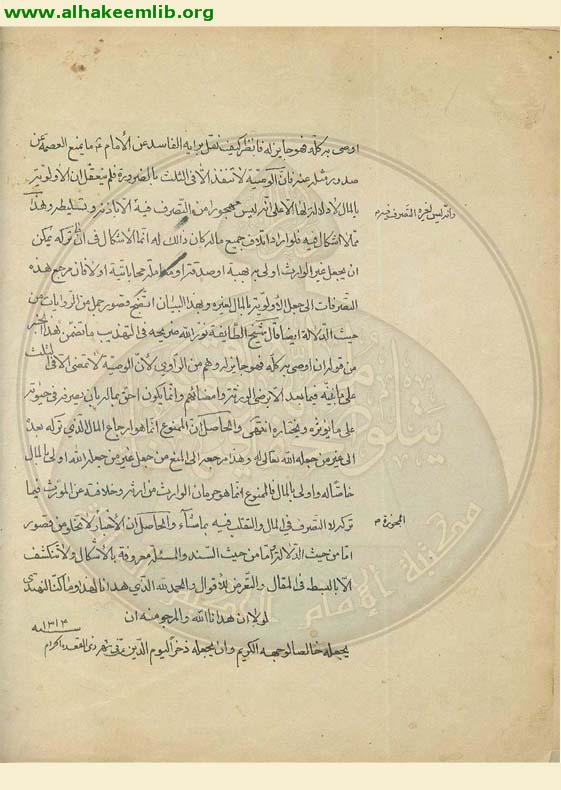 www.alhakeemlib.org
اوصى به كلّه فهو جايز له فانظر كيف نقل برايه الفاسد عن الأمام ع ما يمنع العصمة عن
صدور مثله عنه فان الوصيّة لا تنفذ الا فى الثلث بالضرورة فلم يتعقل ان الاولويّة
بالمال لا دلالة لها الا على انه ليس محجورا من التصرف فيه الا باذنه وتسليطه وهذا
ممّا لا اشكال فيه فلو اراد اتلاف جميع ماله كان ذالك له انما الاشكال فى ان تركه يمكن
ان يجعل غير الوارث اولى به بهبة او صدقة او معاملة محاباتية او لا فان مرجع هذه
التصرفات الى جعل الاولويّة بالمال لغيره وبهذا البيان اتضح قصور جمل من الروايات من
حيث الدّلالة ايضا قال شيخ الطايفة نور الله ضريحه فى التهذيب ما تضمن هذا الخبر
من قوله ان اوصى به كلّه فهو جايز له وهم من الرّاوى لأنّ الوصية لا تمضى الا فى الثلث
على ما بيّنه فيما بعد الا برضى الورثة وامضائهم وانما يكون احق بماله بان يصرفه فى حيوته
على ما يؤثره ويختاره انتهى والحاصل ان الممنوع انما هو ارجاع المال الّذى تركه بعدهُ
الى غير من جعله الله تعالى له وهذا مرجعه الى المنع من جعل غير من جعله الله اولى بالمال
خاصّا له واولى بالمال فالممنوع انما هو حرمان الوارث من ارثه وخلافته عن المورّث فيما
تركه لا التصرف فى المال والتقلب فيه بما شاء والحاصل ان الأخبار لا تخلو من قصور
امّا من حيث الدّلالة وامّا من حيث السّند والمسئلة معروفة بالأشكال ولا تنكشف
الّا بالبسط فى المقال والتعرض للأقوال والحمد لله الّذى هدانا لهذا وما كنّا لنهتدى
لولا ان هدانا الله والمرجو منه ان
يجعله خالصا لوجهه الكريم وان يجعله ذخرا ليوم الدّين فى شهر ذى القعدة الحرام
١٣١٣